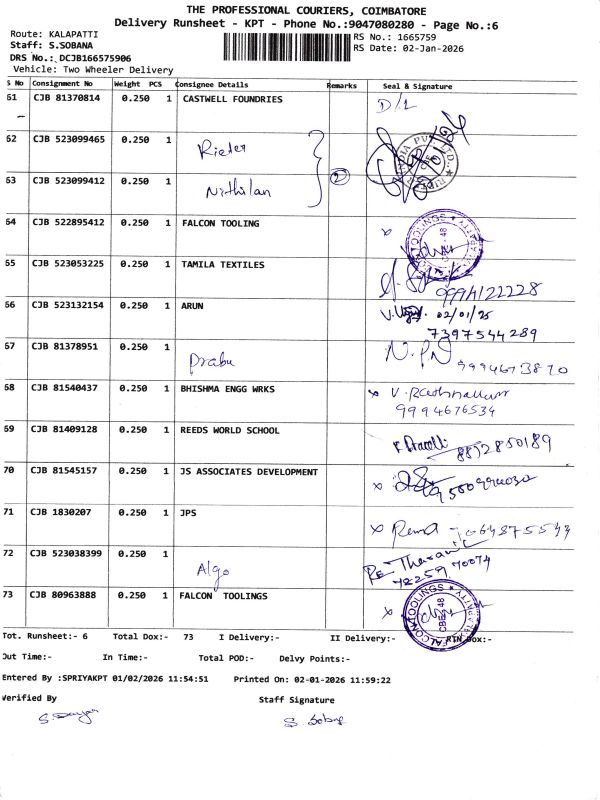 THE PROFESSIONAL COURIERS, COIMBATORE
Delivery Runsheet - KPT - Phone No.:9047080280 - Page No.:6
Route: KALAPATTI
Staff: S.SOBANA
DRS No.: DCJB166575906
Vehicle: Two Wheeler Delivery
RS No.: 1665759
RS Date: 02-Jan-2026
S No Consignment No Weight PCS Consignee Details Remarks Seal & Signature
61 CJB 81370814 0.250 1 CASTWELL FOUNDRIES D/L
62 CJB 523099465 0.250 1 Rieter
63 CJB 523099412 0.250 1 Nithilan 2
64 CJB 522895412 0.250 1 FALCON TOOLING
65 CJB 523053225 0.250 1 TAMILA TEXTILES 9994122228
66 CJB 523132154 0.250 1 ARUN 02/01/25
7397544289
67 CJB 81378951 0.250 1 Prabu N.PN 9994673870
68 CJB 81540437 0.250 1 BHISHMA ENGG WRKS
9994676534
69 CJB 81409128 0.250 1 REEDS WORLD SCHOOL 8852850189
70 CJB 81545157 0.250 1 JS ASSOCIATES DEVELOPMENT
71 CJB 1830207 0.250 1 JPS Rema
72 CJB 523038399 0.250 1 Algo
73 CJB 80963888 0.250 1 FALCON TOOLINGS FALCON TOOLINGS
Tot. Runsheet:- 6 Total Dox:- 73 I Delivery:- II Delivery:- RTN Dox:-
Out Time:- In Time:- Total POD:- Delvy Points:-
Entered By :SPRIYAKPT 01/02/2026 11:54:51 Printed On: 02-01-2026 11:59:22
Verified By Staff Signature